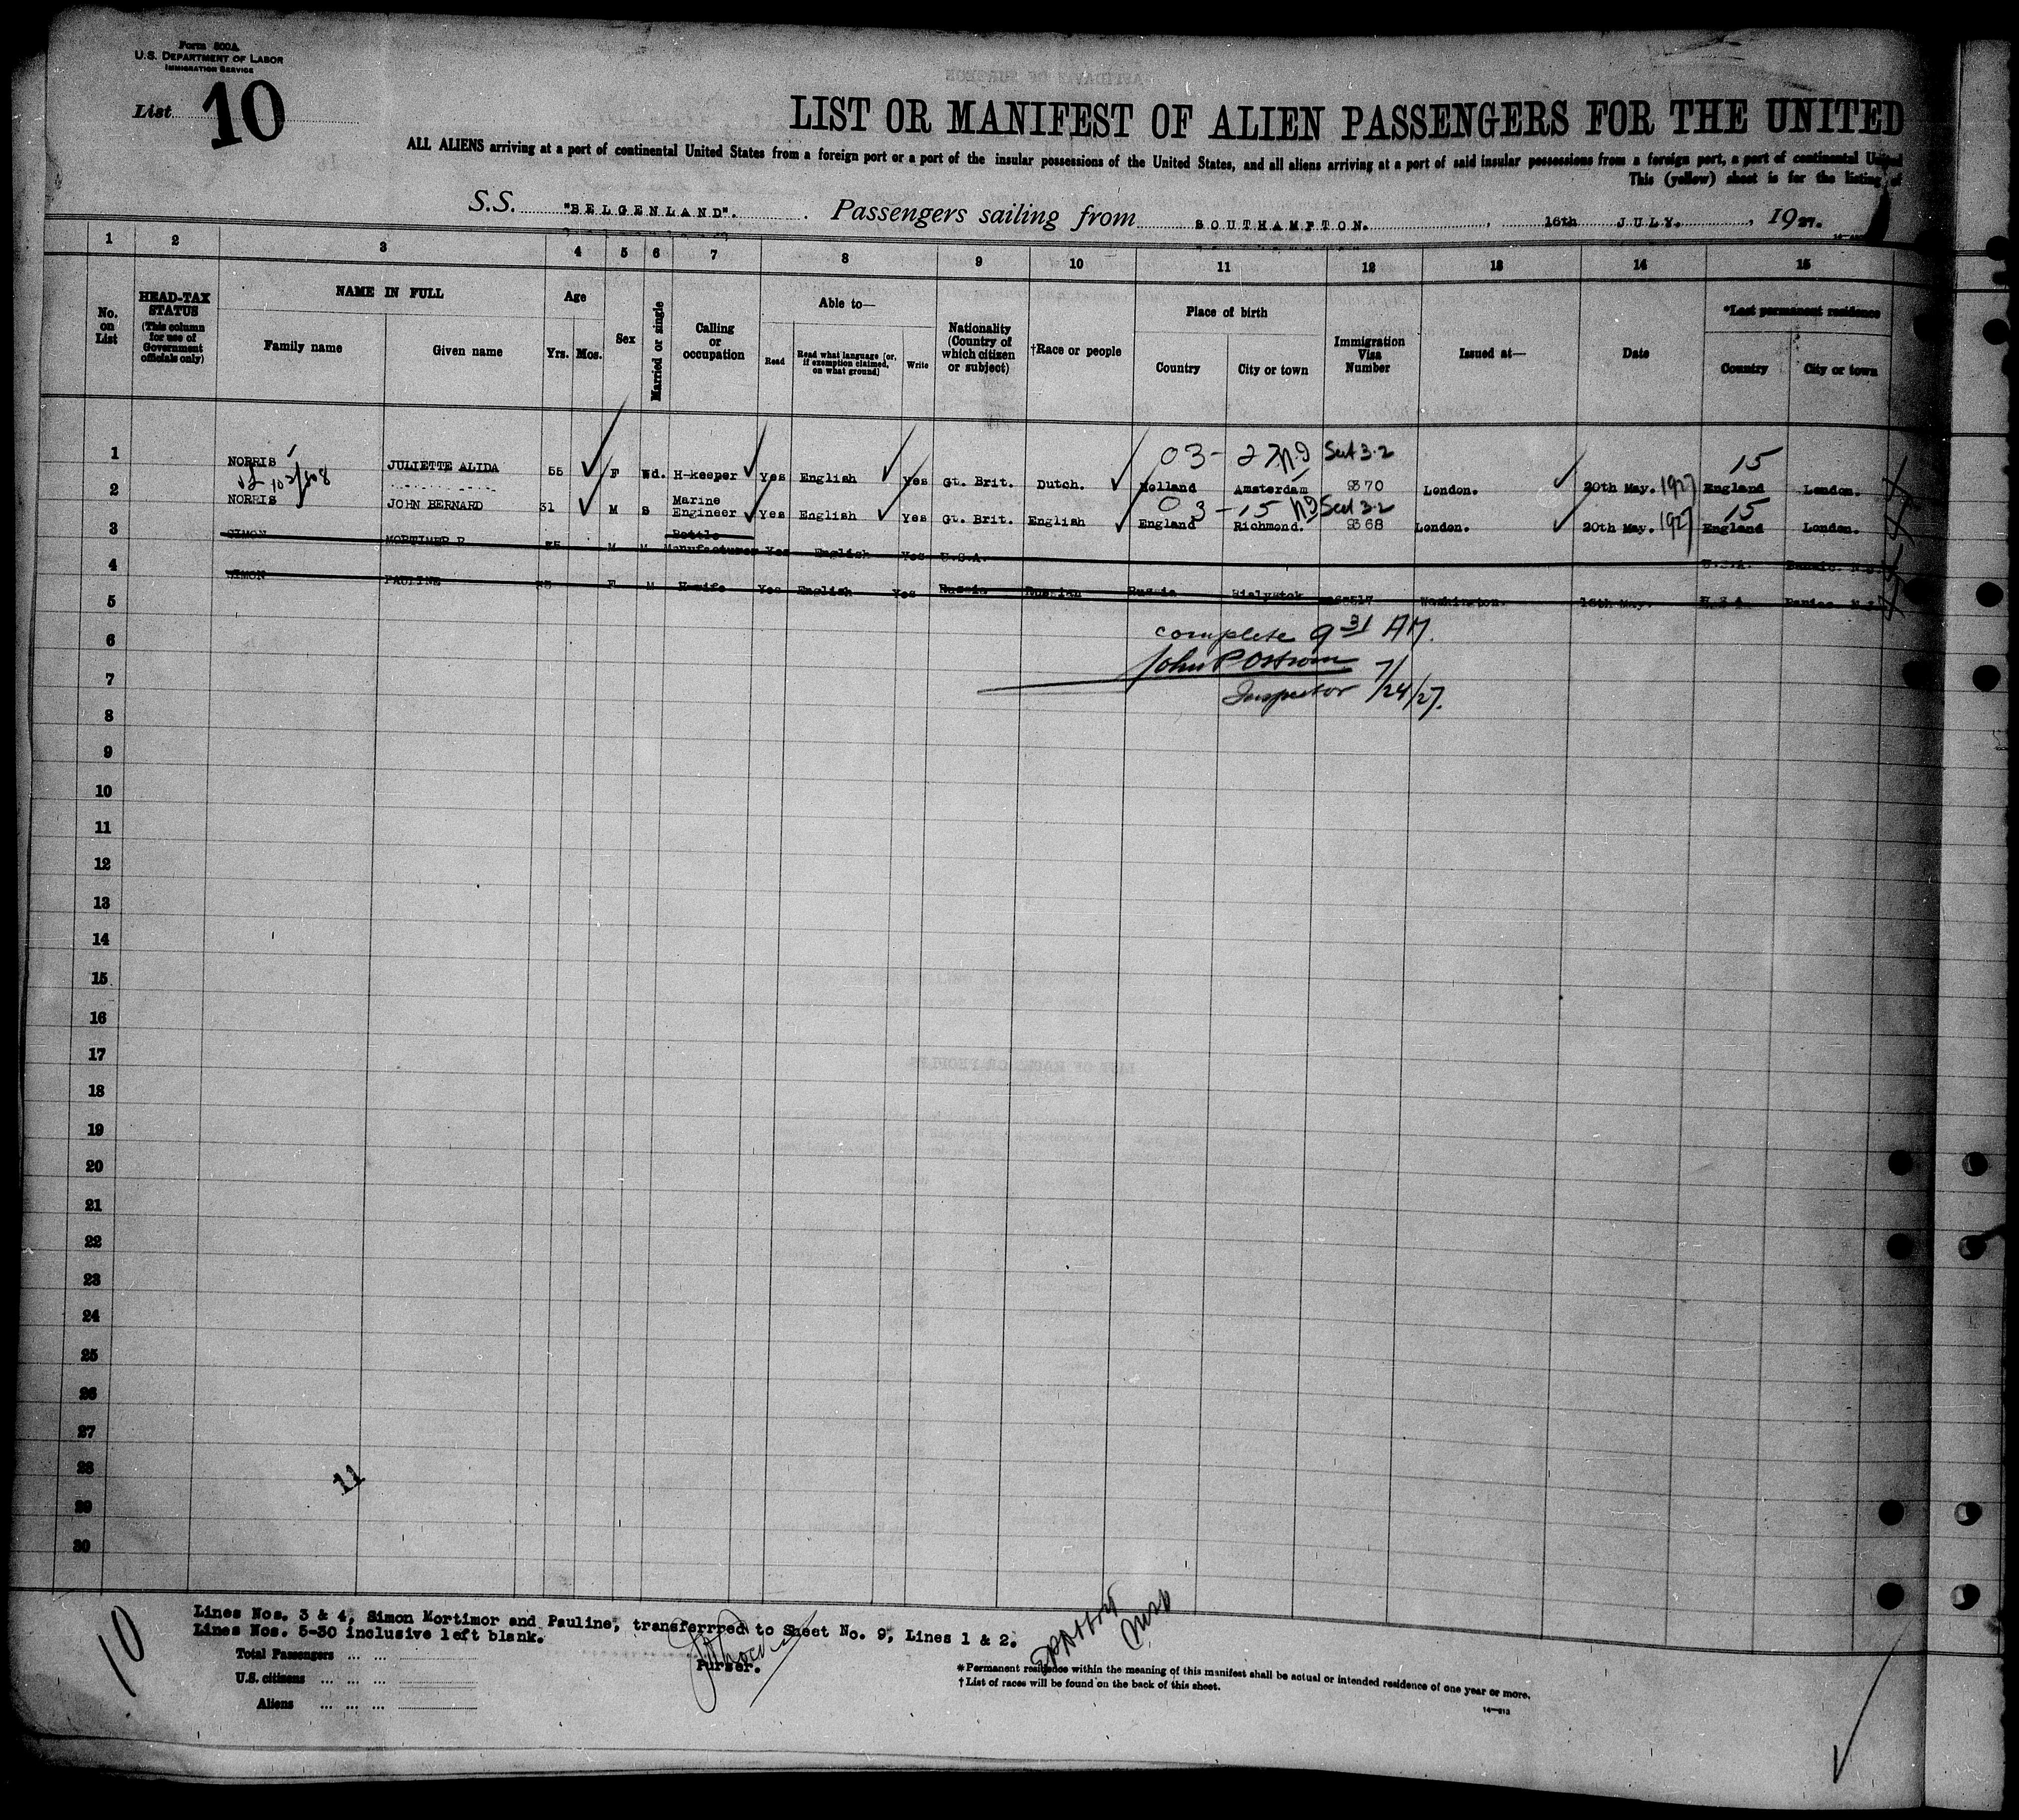 Form 500A
U.S. DEPARTMENT OF LABOR
IMMIGRATION SERVICE
List 10
LIST OR MANIFEST OF ALIEN PASSENGERS FOR THE UNITED
ALL ALIENS arriving at a port of continental United States from a foreign port or a port of the insular possessions of the United States, and all aliens arriving at a port of said insular possessions from a foreign port, a port of continental United
This (yellow) sheet is for the listing of
S.S. "BELGENLAND". Passengers sailing from SOUTHAMPTON. , 16th JULY. , 1927.
1 2 3 4 5 6 7 8 9 10 11 12 13 14 15
No. on List
HEAD-TAX STATUS (This column for use of Government officials only)
NAME IN FULL
Family name Given name
Age
Yrs. Mos.
Sex
Married or single
Calling or occupation
Able to—
Read Read what language (or, if exemption claimed, on what ground) Write
Nationality (Country of which citizen or subject)
†Race or people
Place of birth
Country City or town
Immigration Visa Number
Issued at—
Date
*Last permanent residence
Country City or town
03- 27 Sect 3-2 15
1 NORRIS JULIETTE ALIDA 55 F Wd. H-keeper Yes English Yes Gt. Brit. Dutch. Holland Amsterdam 9370 London. 20th May. 1927 England London.
03-15 Sect 3-2 15
2 NORRIS JOHN BERNARD 31 M S Marine Engineer Yes English Yes Gt. Brit. English England Richmond. 9368 London. 20th May. 1927 England London.
3 SIMON MORTIMER M M Bottle Manufacturer Yes English Yes U.S.A. U.S.A.
4 SIMON PAULINE F M H-wife Yes English Yes Russia Russian Russia Bialystok Washington. 16th May. U.S.A.
5
complete 9 31 AM.
6
John P Ostrom
7
Inspector 7/24/27.
8
9
10
11
12
13
14
15
16
17
18
19
20
21
22
23
24
25
26
27
28
11
29
30
Lines Nos. 3 & 4, Simon Mortimor and Pauline, transferrred to Sheet No. 9, Lines 1 & 2.
Lines Nos. 5-30 inclusive left blank.
10
Total Passengers ... ...
Purser.
U.S. citizens ... ... ...
Aliens ... ... ...
*Permanent residence within the meaning of this manifest shall be actual or intended residence of one year or more.
†List of races will be found on the back of this sheet.
14—813